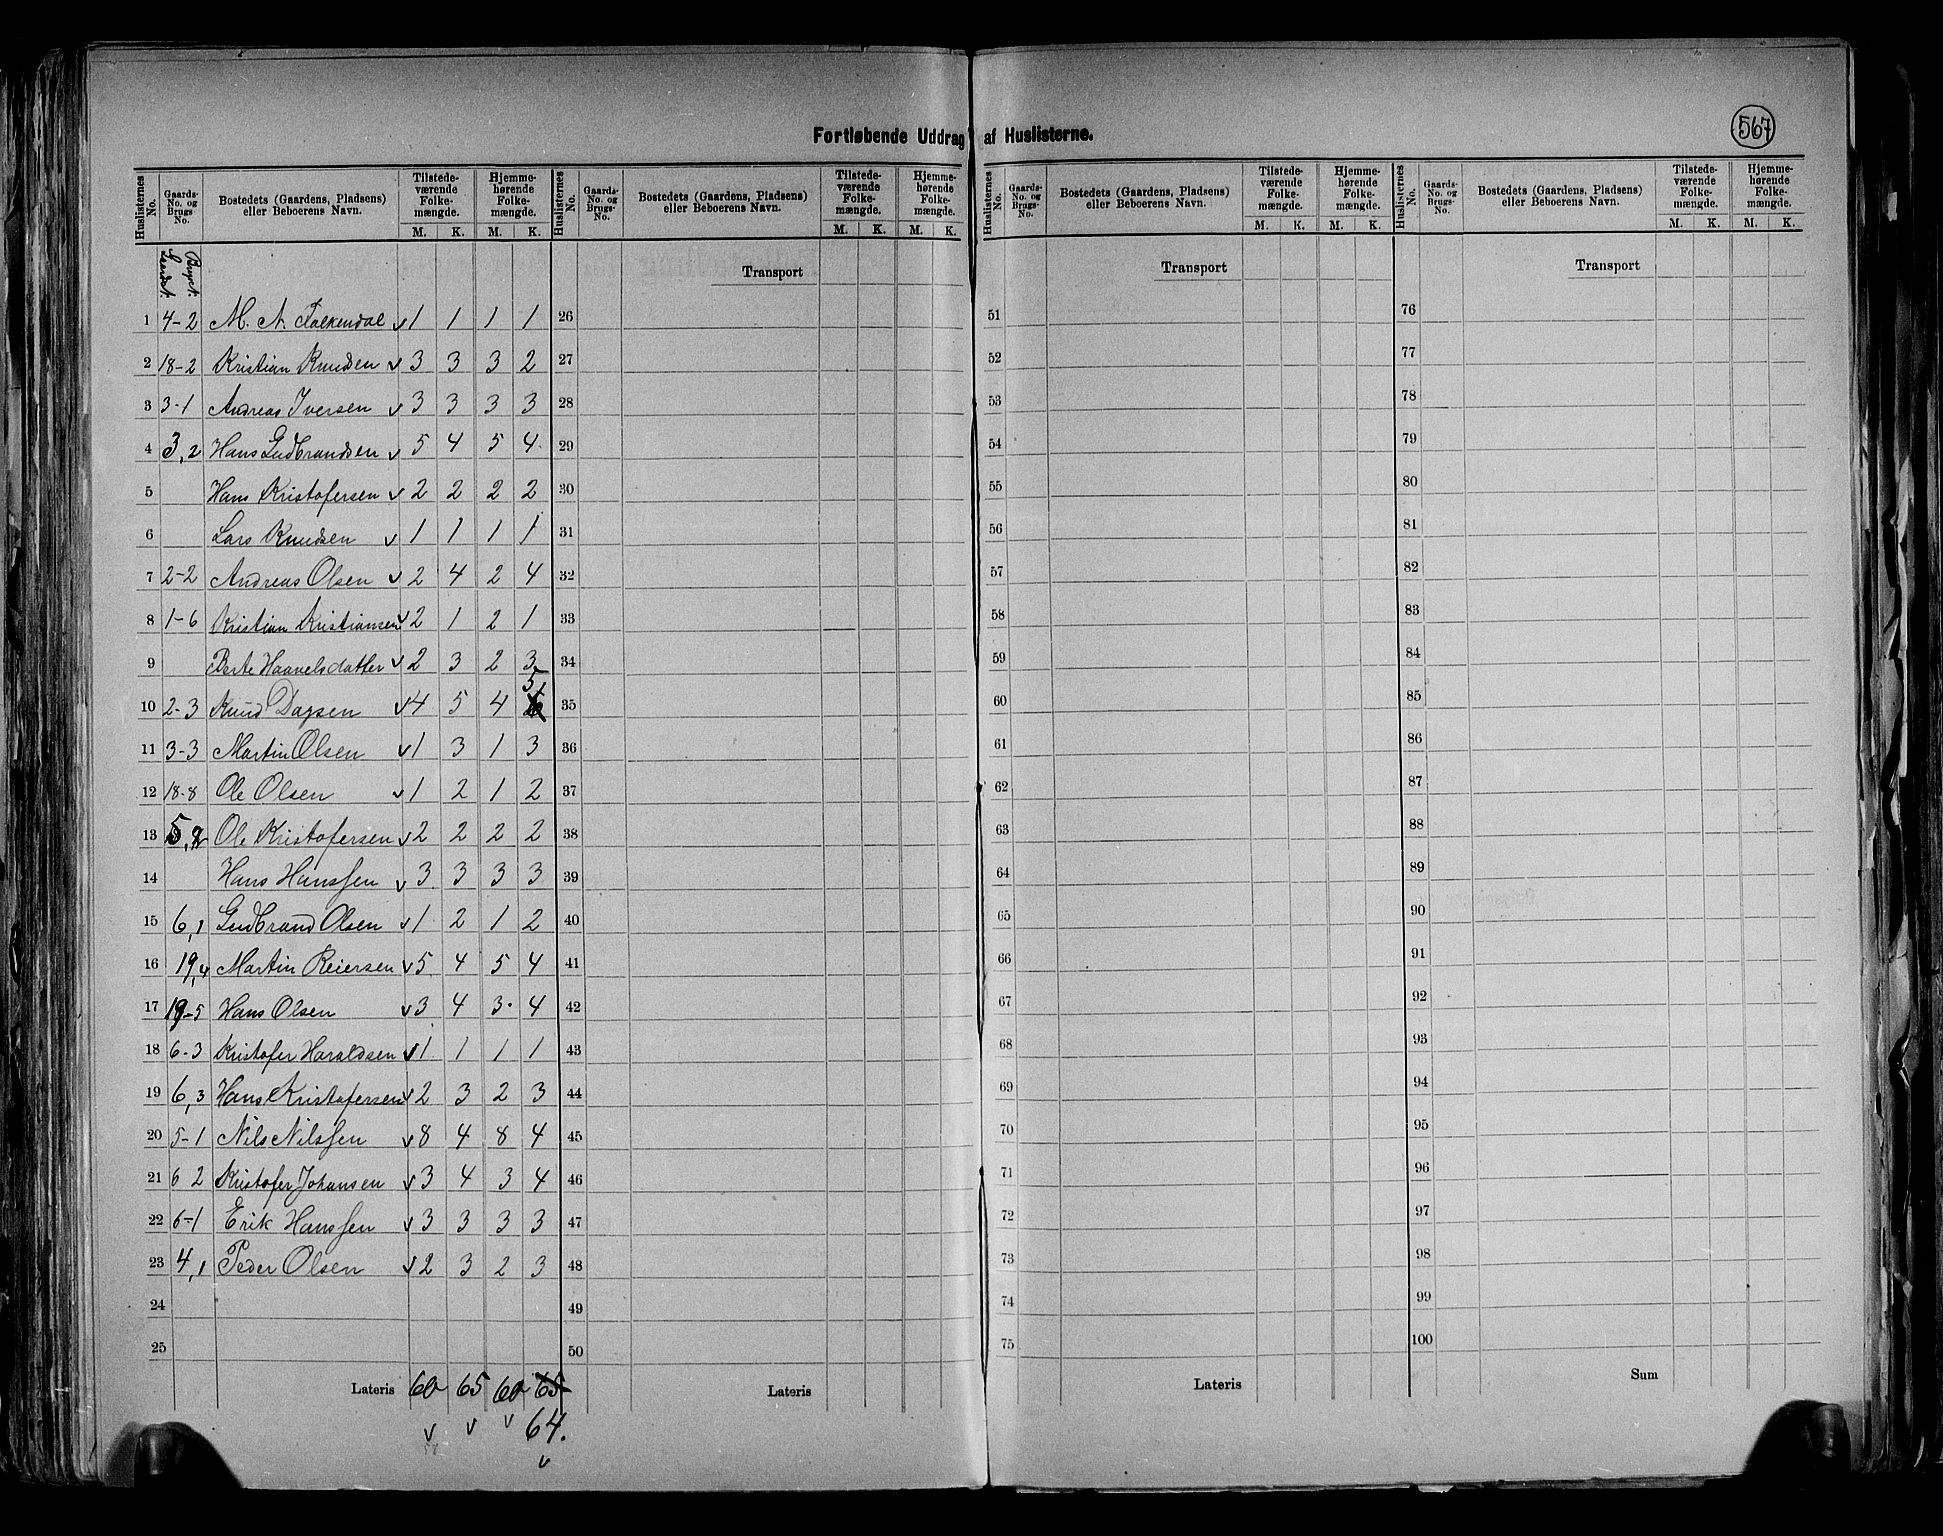 567
Fortløbende Uddrag af Huslisterne.
Huslisternes No. Gaards- No. og Brugs- No. Bostedets (Gaardens, Pladsens) eller Beboerens Navn. Tilstede- værende Folke- mængde. M. K. Hjemme- hørende Folke- mængde. M. K.
Huslisternes No. Gaards- No. og Brugs- No. Bostedets (Gaardens, Pladsens) eller Beboerens Navn. Tilstede- værende Folke- mængde. M. K. Hjemme- hørende Folke- mængde. M. K.
Huslisternes No. Gaards- No. og Brugs- No. Bostedets (Gaardens, Pladsens) eller Beboerens Navn. Tilstede- værende Folke- mængde. M. K. Hjemme- hørende Folke- mængde. M. K.
Huslisternes No. Gaards- No. og Brugs- No. Bostedets (Gaardens, Pladsens) eller Beboerens Navn. Tilstede- værende Folke- mængde. M. K. Hjemme- hørende Folke- mængde. M. K.
Transport Transport Transport
1 4-2 M. N. Falkendal v 1 1 1 1 26 51 76
2 18-2 Kristian Knudsen v 3 3 3 2 27 52 77
3 3-1 Andreas Iversen v 3 3 3 3 28 53 78
4 3,2 Hans Gudbrandsen v 5 4 5 4 29 54 79
5 Hans Kristofersen v 2 2 2 2 30 55 80
6 Lars Knudsen v 1 1 1 1 31 56 81
7 2-2 Andreas Olsen v 2 4 2 4 32 57 82
8 1-6 Kristian Kristiansen v 2 1 2 1 33 58 83
9 Berte Haavelsdatter v 2 3 2 3 34 59 84
10 2-3 Knud Dagsen v 4 5 4 5 35 60 85
11 3-3 Martin Olsen v 1 3 1 3 36 61 86
12 18-8 Ole Olsen v 1 2 1 2 37 62 87
13 5,2 Ole Kristofersen v 2 2 2 2 38 63 88
14 Hans Hanssen v 3 3 3 3 39 64 89
15 6,1 Gudbrand Olsen v 1 2 1 2 40 65 90
16 19,4 Martin Reiersen v 5 4 5 4 41 66 91
17 19-5 Hans Olsen v 3 4 3 4 42 67 92
18 6-3 Kristofer Haraldsen v 1 1 1 1 43 68 93
19 6,3 Hans Kristofersen v 2 3 2 3 44 69 94
20 5-1 Nils Nilssen v 8 4 8 4 45 70 95
21 6 2 Kristofer Johansen v 3 4 3 4 46 71 96
22 6-1 Erik Hanssen v 3 3 3 3 47 72 97
23 4,1 Peder Olsen v 2 3 2 3 48 73 98
24 49 74 99
25 50 75 100
Lateris 60 65 60 65 Lateris Lateris Sum
v v v 64.
v